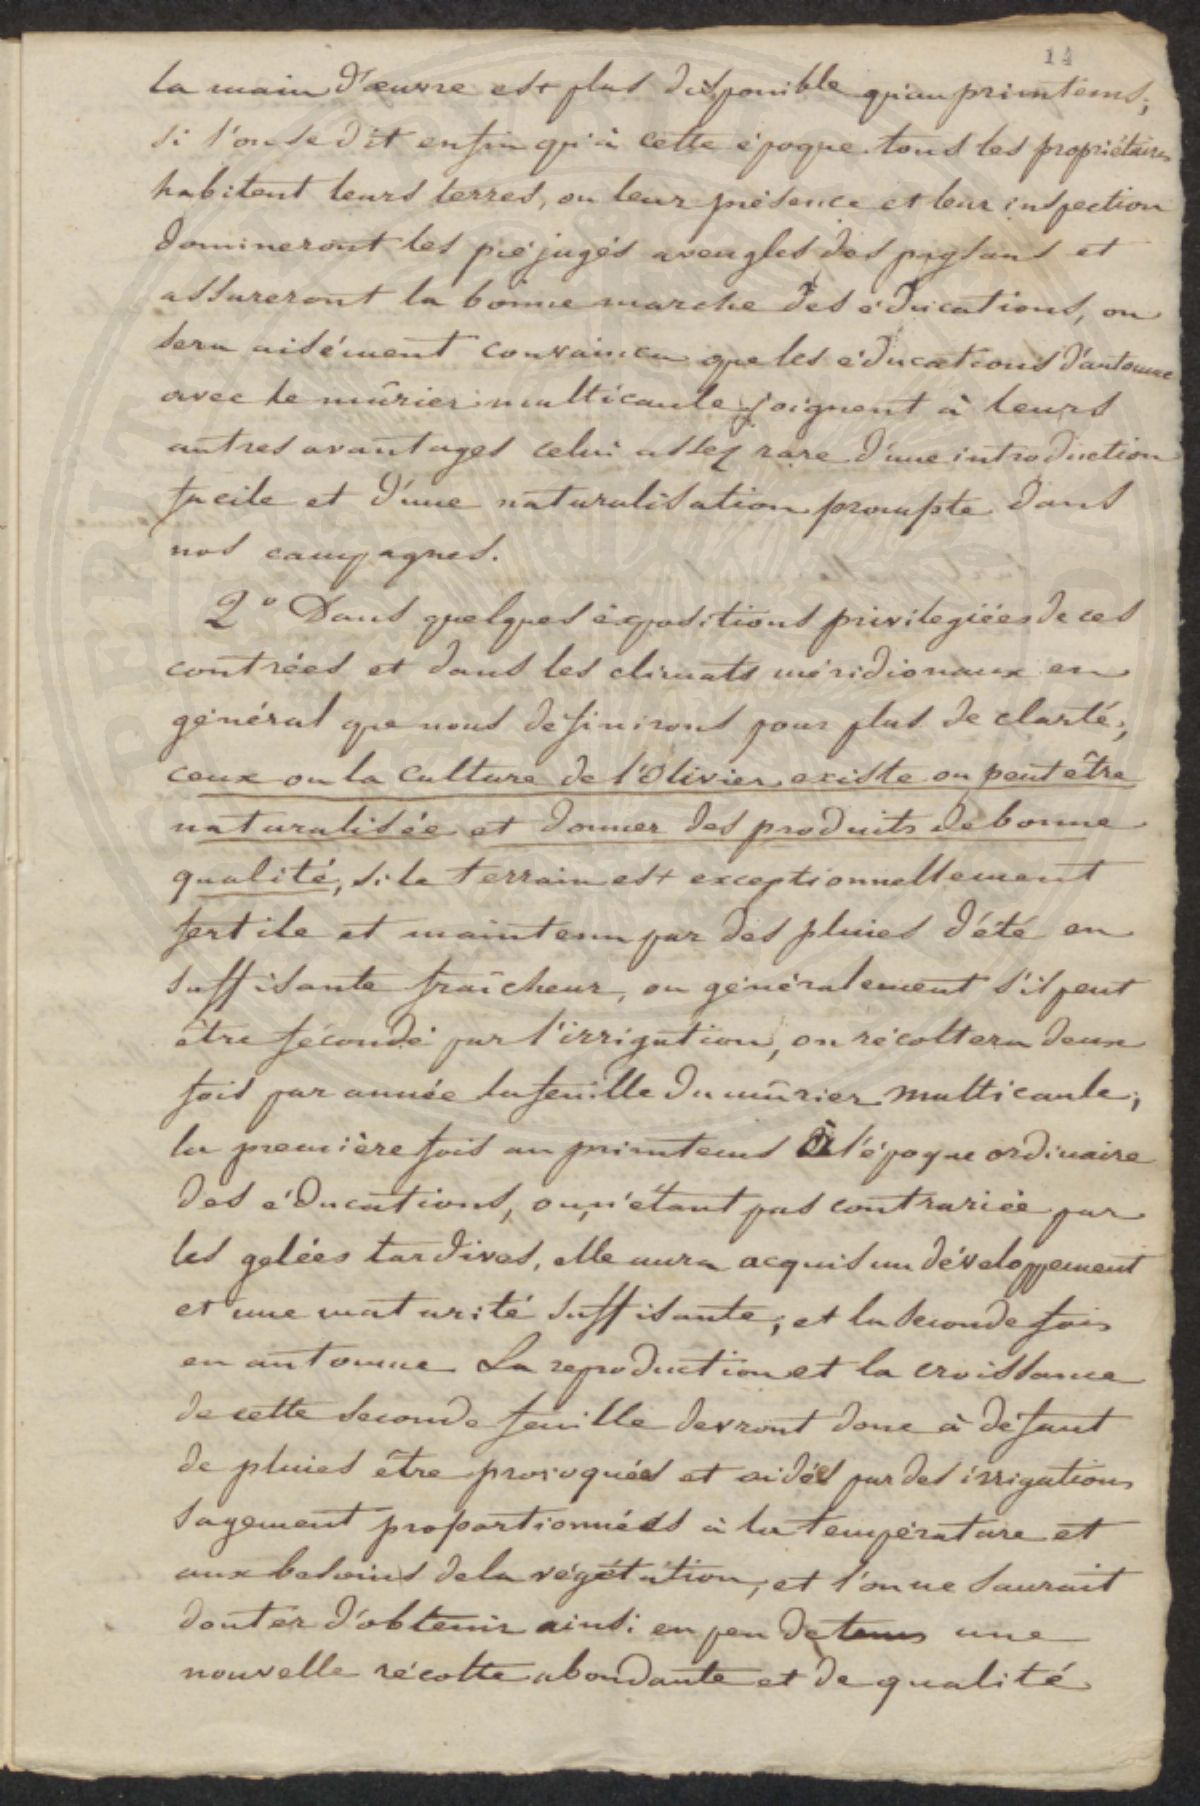 14
la main d'œuvre est plus disponible qu'au printems;
si l'on se dit enfin qu'à cette époque tous les propriétaires
habitent leurs terres, ou leur présence et leur inspection
domineront les préjugés aveugles des paysans et
assureront la bonne marche des éducations, on
sera aisément convaincu que les éducations d'automne
avec le mûrier multicaule joignent à leurs
autres avantages celui assez rare d'une introduction
facile et d'une naturalisation prompte dans
nos campagnes.
2° Dans quelques expositions privilegiées de ces
contrées et dans les climats méridionaux en
général que nous définirons pour plus de clarté,
ceux ou la culture de l'Olivier existe ou peut être
naturalisée et donner des produits de bonne
qualité, si le terrain est exceptionnellement
fertile et maintenu par des pluies d'été en
suffisante fraîcheur, ou généralement s'il peut
être fécondé par l'irrigation, on récoltera deux
fois par année la feuille du mûrier multicaule,
la première fois au printems à l'époque ordinaire
des éducations, ou n'étant pas contrariée par
les gelées tardives, elle aura acquis un développement
et une maturité suffisante; et la seconde fois
en automne La reproduction et la croissance
de cette seconde feuille devront donc à défaut
de pluies être provoqués et aidés par des irrigations
sagement proportionnées à la température et
aux besoins de la végétation, et l'on ne saurait
douter d'obtenir ainsi en peu de tems une
nouvelle récolte abondante et de qualité